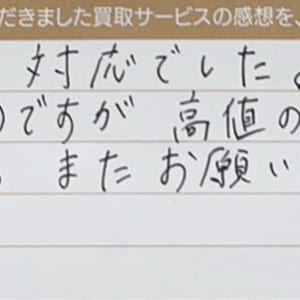 だきました買取サービスの感想を
対応でした。
のですが 高値の
またお願い